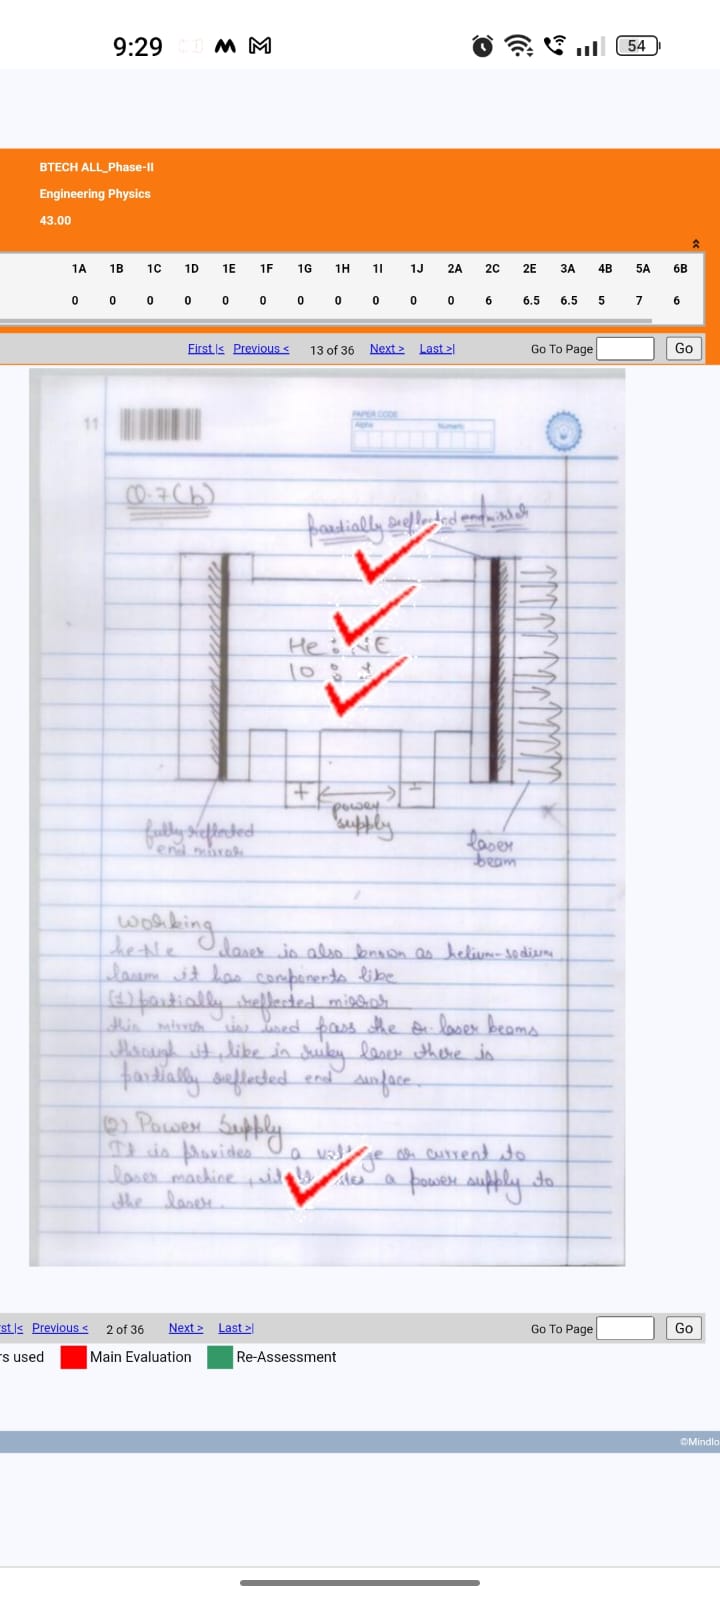 9:29
54
BTECH ALL_Phase-II
Engineering Physics
43.00
1A 1B 1C 1D 1E 1F 1G 1H 1I 1J 2A 2C 2E 3A 4B 5A 6B
0 0 0 0 0 0 0 0 0 0 0 6 6.5 6.5 5 7 6
First |< Previous < 13 of 36 Next > Last >| Go To Page Go
11
PAPER CODE
Alpha Numeric
Q.7(b)
partially reflected end mirror
He : NE
10 :
+ -
power
supply
fully reflected
end mirror
laser
beam
working
he-Ne laser is also known as helium-sodium
it has components like
(1) partially reflected mirror
this mirror is used pass the laser beams
through it, like in ruby laser there is
partially reflected end surface.
(2) Power Supply
It is provides a voltage or current to
laser machine, a power supply to
the laser.
rst |< Previous < 2 of 36 Next > Last >| Go To Page Go
rs used Main Evaluation Re-Assessment
©Mindlo